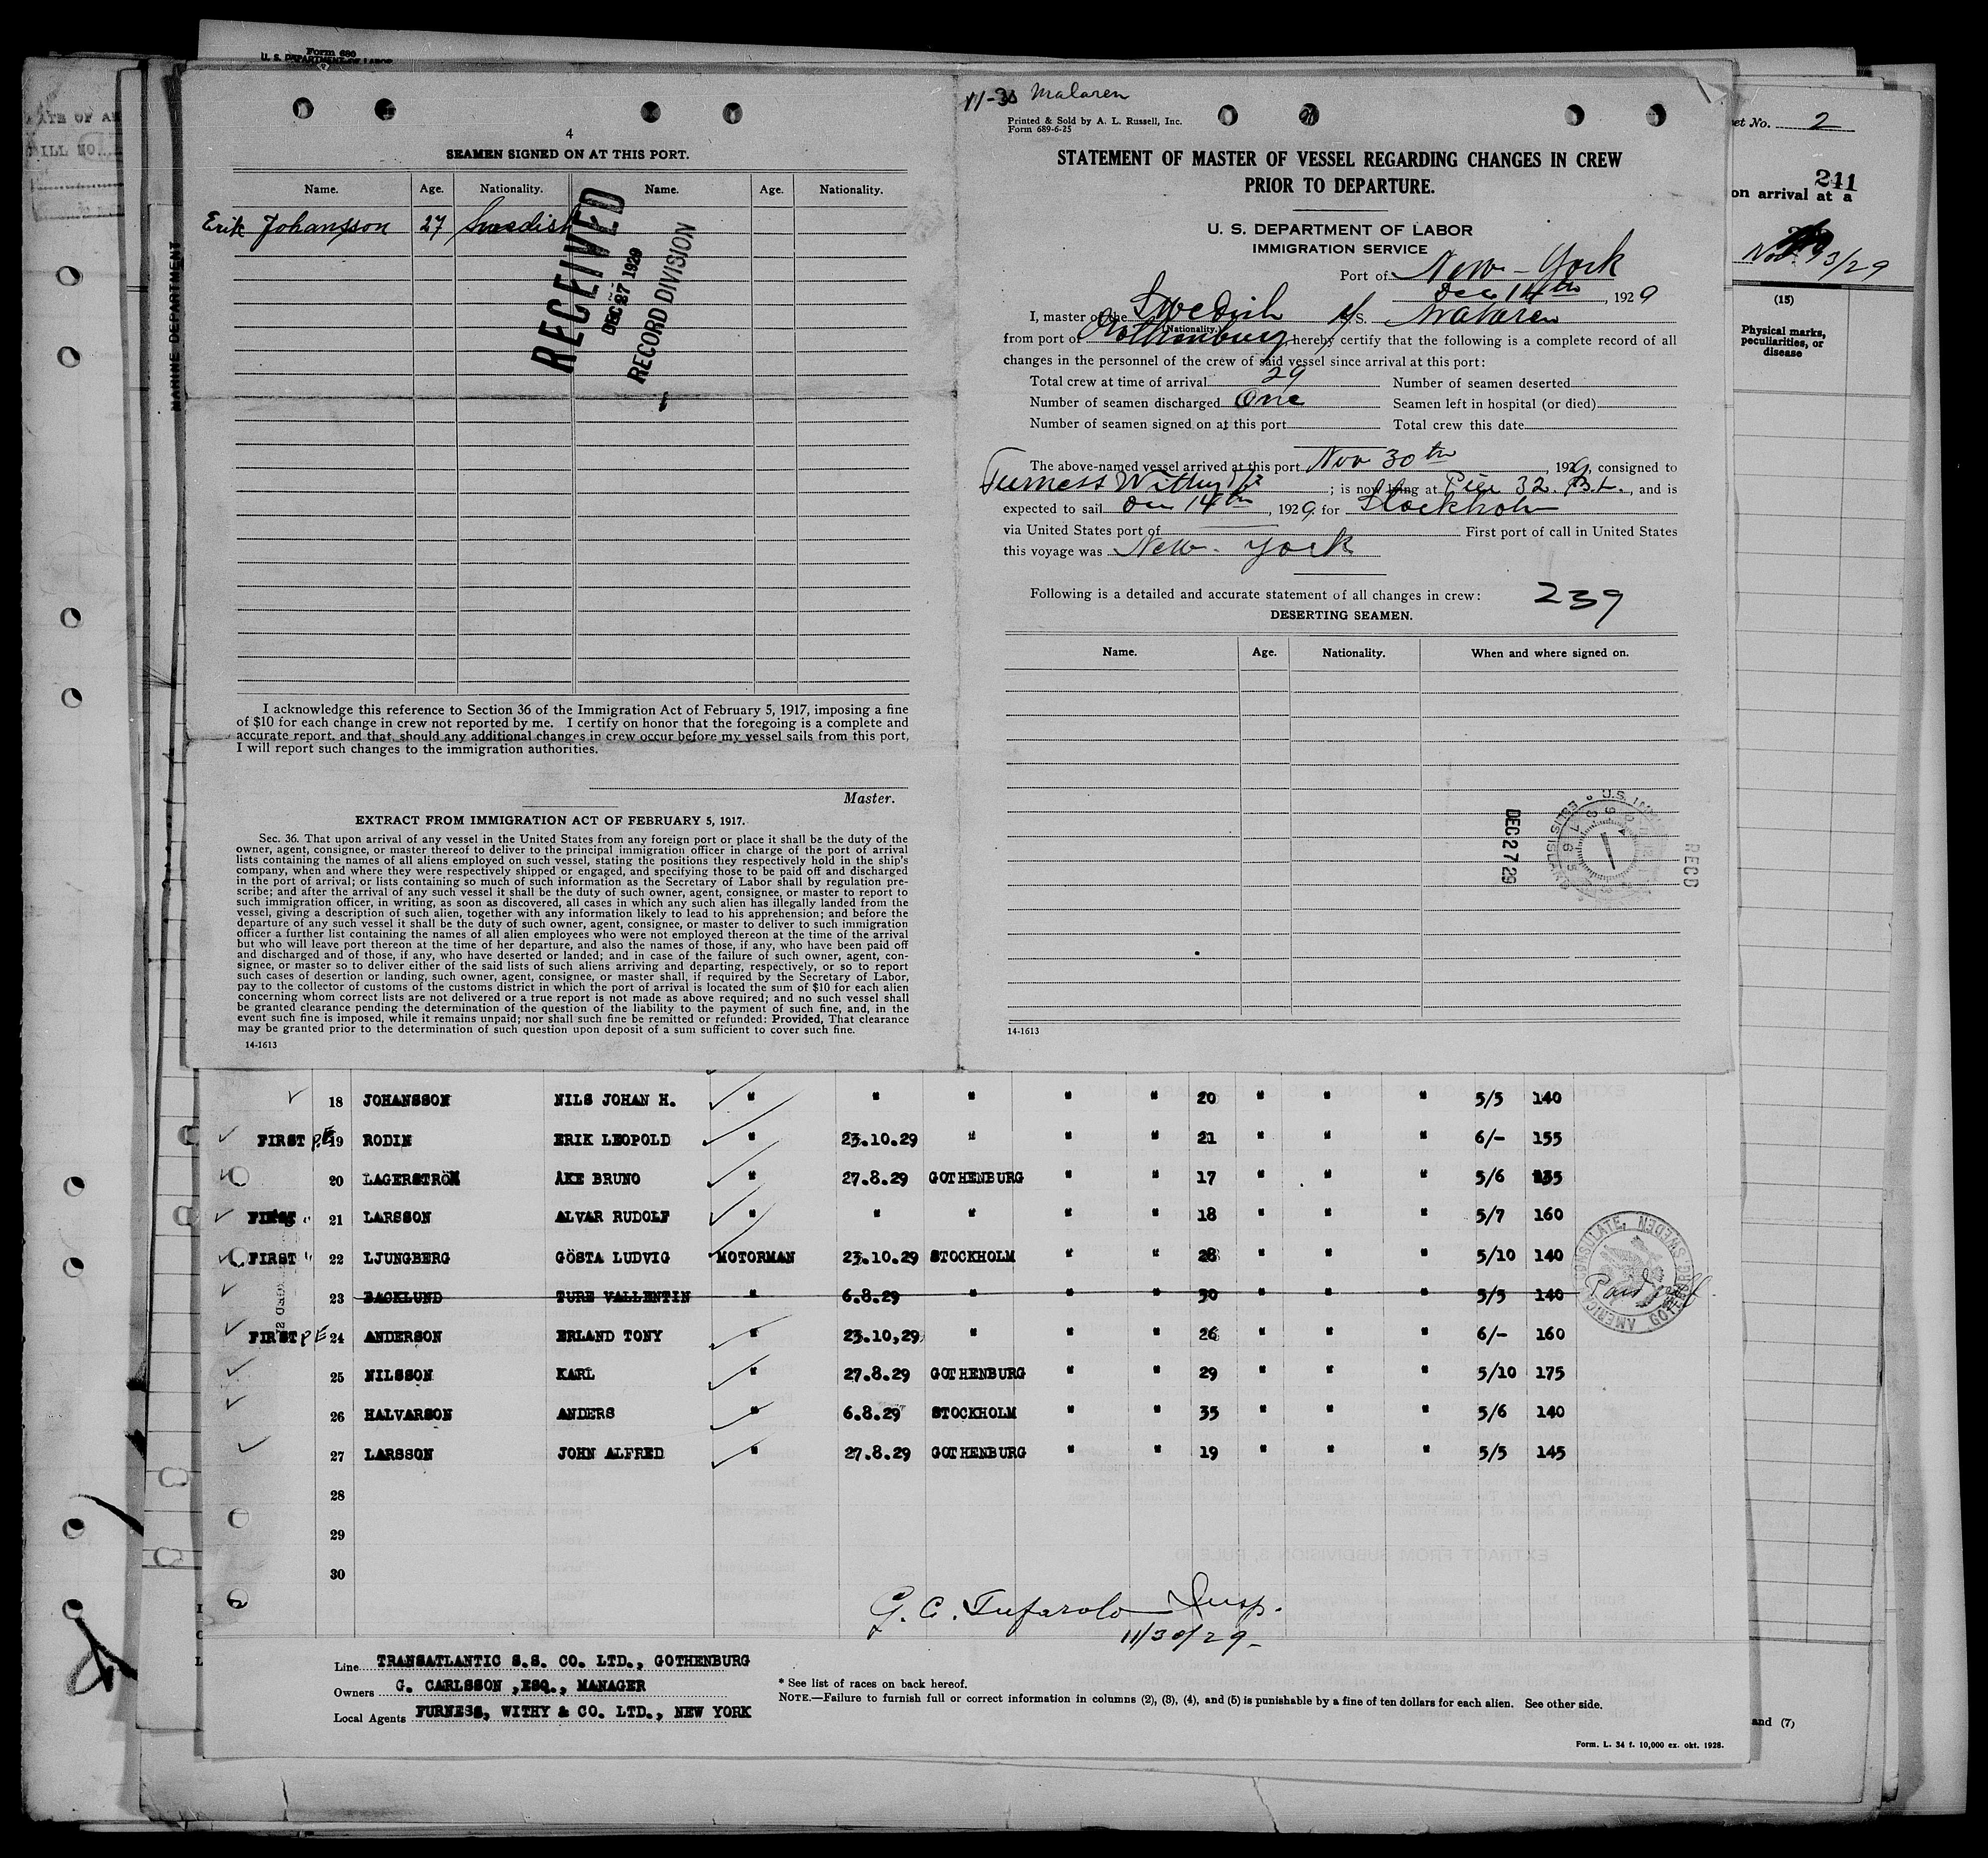 Form 689
U. S. DEPARTMENT OF LABOR
4
SEAMEN SIGNED ON AT THIS PORT.
Name. Age. Nationality. Name. Age. Nationality.
Erik Johansson 27 Swedish
RECEIVED
DEC 27 1929
RECORD DIVISION
I acknowledge this reference to Section 36 of the Immigration Act of February 5, 1917, imposing a fine
of $10 for each change in crew not reported by me. I certify on honor that the foregoing is a complete and
accurate report, and that, should any additional changes in crew occur before my vessel sails from this port,
I will report such changes to the immigration authorities.
Master.
EXTRACT FROM IMMIGRATION ACT OF FEBRUARY 5, 1917.
Sec. 36. That upon arrival of any vessel in the United States from any foreign port or place it shall be the duty of the
owner, agent, consignee, or master thereof to deliver to the principal immigration officer in charge of the port of arrival
lists containing the names of all aliens employed on such vessel, stating the positions they respectively hold in the ship's
company, when and where they were respectively shipped or engaged, and specifying those to be paid off and discharged
in the port of arrival; or lists containing so much of such information as the Secretary of Labor shall by regulation pre-
scribe; and after the arrival of any such vessel it shall be the duty of such owner, agent, consignee, or master to report to
such immigration officer, in writing, as soon as discovered, all cases in which any such alien has illegally landed from the
vessel, giving a description of such alien, together with any information likely to lead to his apprehension; and before the
departure of any such vessel it shall be the duty of such owner, agent, consignee, or master to deliver to such immigration
officer a further list containing the names of all alien employees who were not employed thereon at the time of the arrival
but who will leave port thereon at the time of her departure, and also the names of those, if any, who have been paid off
and discharged and of those, if any, who have deserted or landed; and in case of the failure of such owner, agent, con-
signee, or master so to deliver either of the said lists of such aliens arriving and departing, respectively, or so to report
such cases of desertion or landing, such owner, agent, consignee, or master shall, if required by the Secretary of Labor,
pay to the collector of customs of the customs district in which the port of arrival is located the sum of $10 for each alien
concerning whom correct lists are not delivered or a true report is not made as above required; and no such vessel shall
be granted clearance pending the determination of the question of the liability to the payment of such fine, and, in the
event such fine is imposed, while it remains unpaid; nor shall such fine be remitted or refunded: Provided, That clearance
may be granted prior to the determination of such question upon deposit of a sum sufficient to cover such fine.
14-1613
11-30 Malaren
Printed & Sold by A. L. Russell, Inc.
Form 689-6-25
STATEMENT OF MASTER OF VESSEL REGARDING CHANGES IN CREW
PRIOR TO DEPARTURE.
U. S. DEPARTMENT OF LABOR
IMMIGRATION SERVICE
Port of New-York
Dec 14th, 1929
I, master of the Swedish M/S. Malaren
(Nationality.)
from port of Gothenburg hereby certify that the following is a complete record of all
changes in the personnel of the crew of said vessel since arrival at this port:
Total crew at time of arrival 29 Number of seamen deserted
Number of seamen discharged One Seamen left in hospital (or died)
Number of seamen signed on at this port Total crew this date
The above-named vessel arrived at this port Nov 30th, 1929, consigned to
Furness Withy ; is now lying at Pier 32. B.L., and is
expected to sail Dec 14th, 1929 for Stockholm
via United States port of First port of call in United States
this voyage was New-York
Following is a detailed and accurate statement of all changes in crew: 239
DESERTING SEAMEN.
Name. Age. Nationality. When and where signed on.
DEC 27 29
RECD
14-1613
MARINE DEPARTMENT
2
241
on arrival at a
(15)
Physical marks,
peculiarities, or
disease
18 JOHANSSON NILS JOHAN H. " " " " " 20 " " " 5/5 140
FIRST P.E 19 RODIN ERIK LEOPOLD " 23.10.29 " " " 21 " " " 6/- 155
20 LAGERSTRÖM ÅKE BRUNO " 27.8.29 GOTHENBURG " " 17 " " " 5/6 135
FIRST " 21 LARSSON ALVAR RUDOLF " " " " " 18 " " " 5/7 160
FIRST " 22 LJUNGBERG GÖSTA LUDVIG MOTORMAN 23.10.29 STOCKHOLM " " 28 " " " 5/10 140
23 BACKLUND TURE VALLENTIN " 6.8.29 " " " 30 " " " 5/5 140 Paid off
AMERICAN CONSULATE, GOTHENBURG SWEDEN
FIRST P E 24 ANDERSON ERLAND TONY " 23.10,29 " " " 26 " " " 6/- 160
25 NILSSON KARL " 27.8.29 GOTHENBURG " " 29 " " " 5/10 175
26 HALVARSON ANDERS " 6.8.29 STOCKHOLM " " 35 " " " 5/6 140
27 LARSSON JOHN ALFRED " 27.8.29 GOTHENBURG " " 19 " " " 5/5 145
28
29
30
G. C. Tufarolo Insp.
11/30/29-
Line TRANSATLANTIC S.S. CO. LTD., GOTHENBURG
Owners G. CARLSSON ,ESQ., MANAGER
Local Agents FURNESS, WITHY & CO. LTD., NEW YORK
* See list of races on back hereof.
NOTE.—Failure to furnish full or correct information in columns (2), (3), (4), and (5) is punishable by a fine of ten dollars for each alien. See other side.
and (7)
Form. L. 34 f. 10,000 ex. okt. 1928.